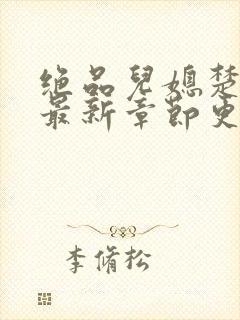 绝品儿媳楚
最新章节更
李脩松